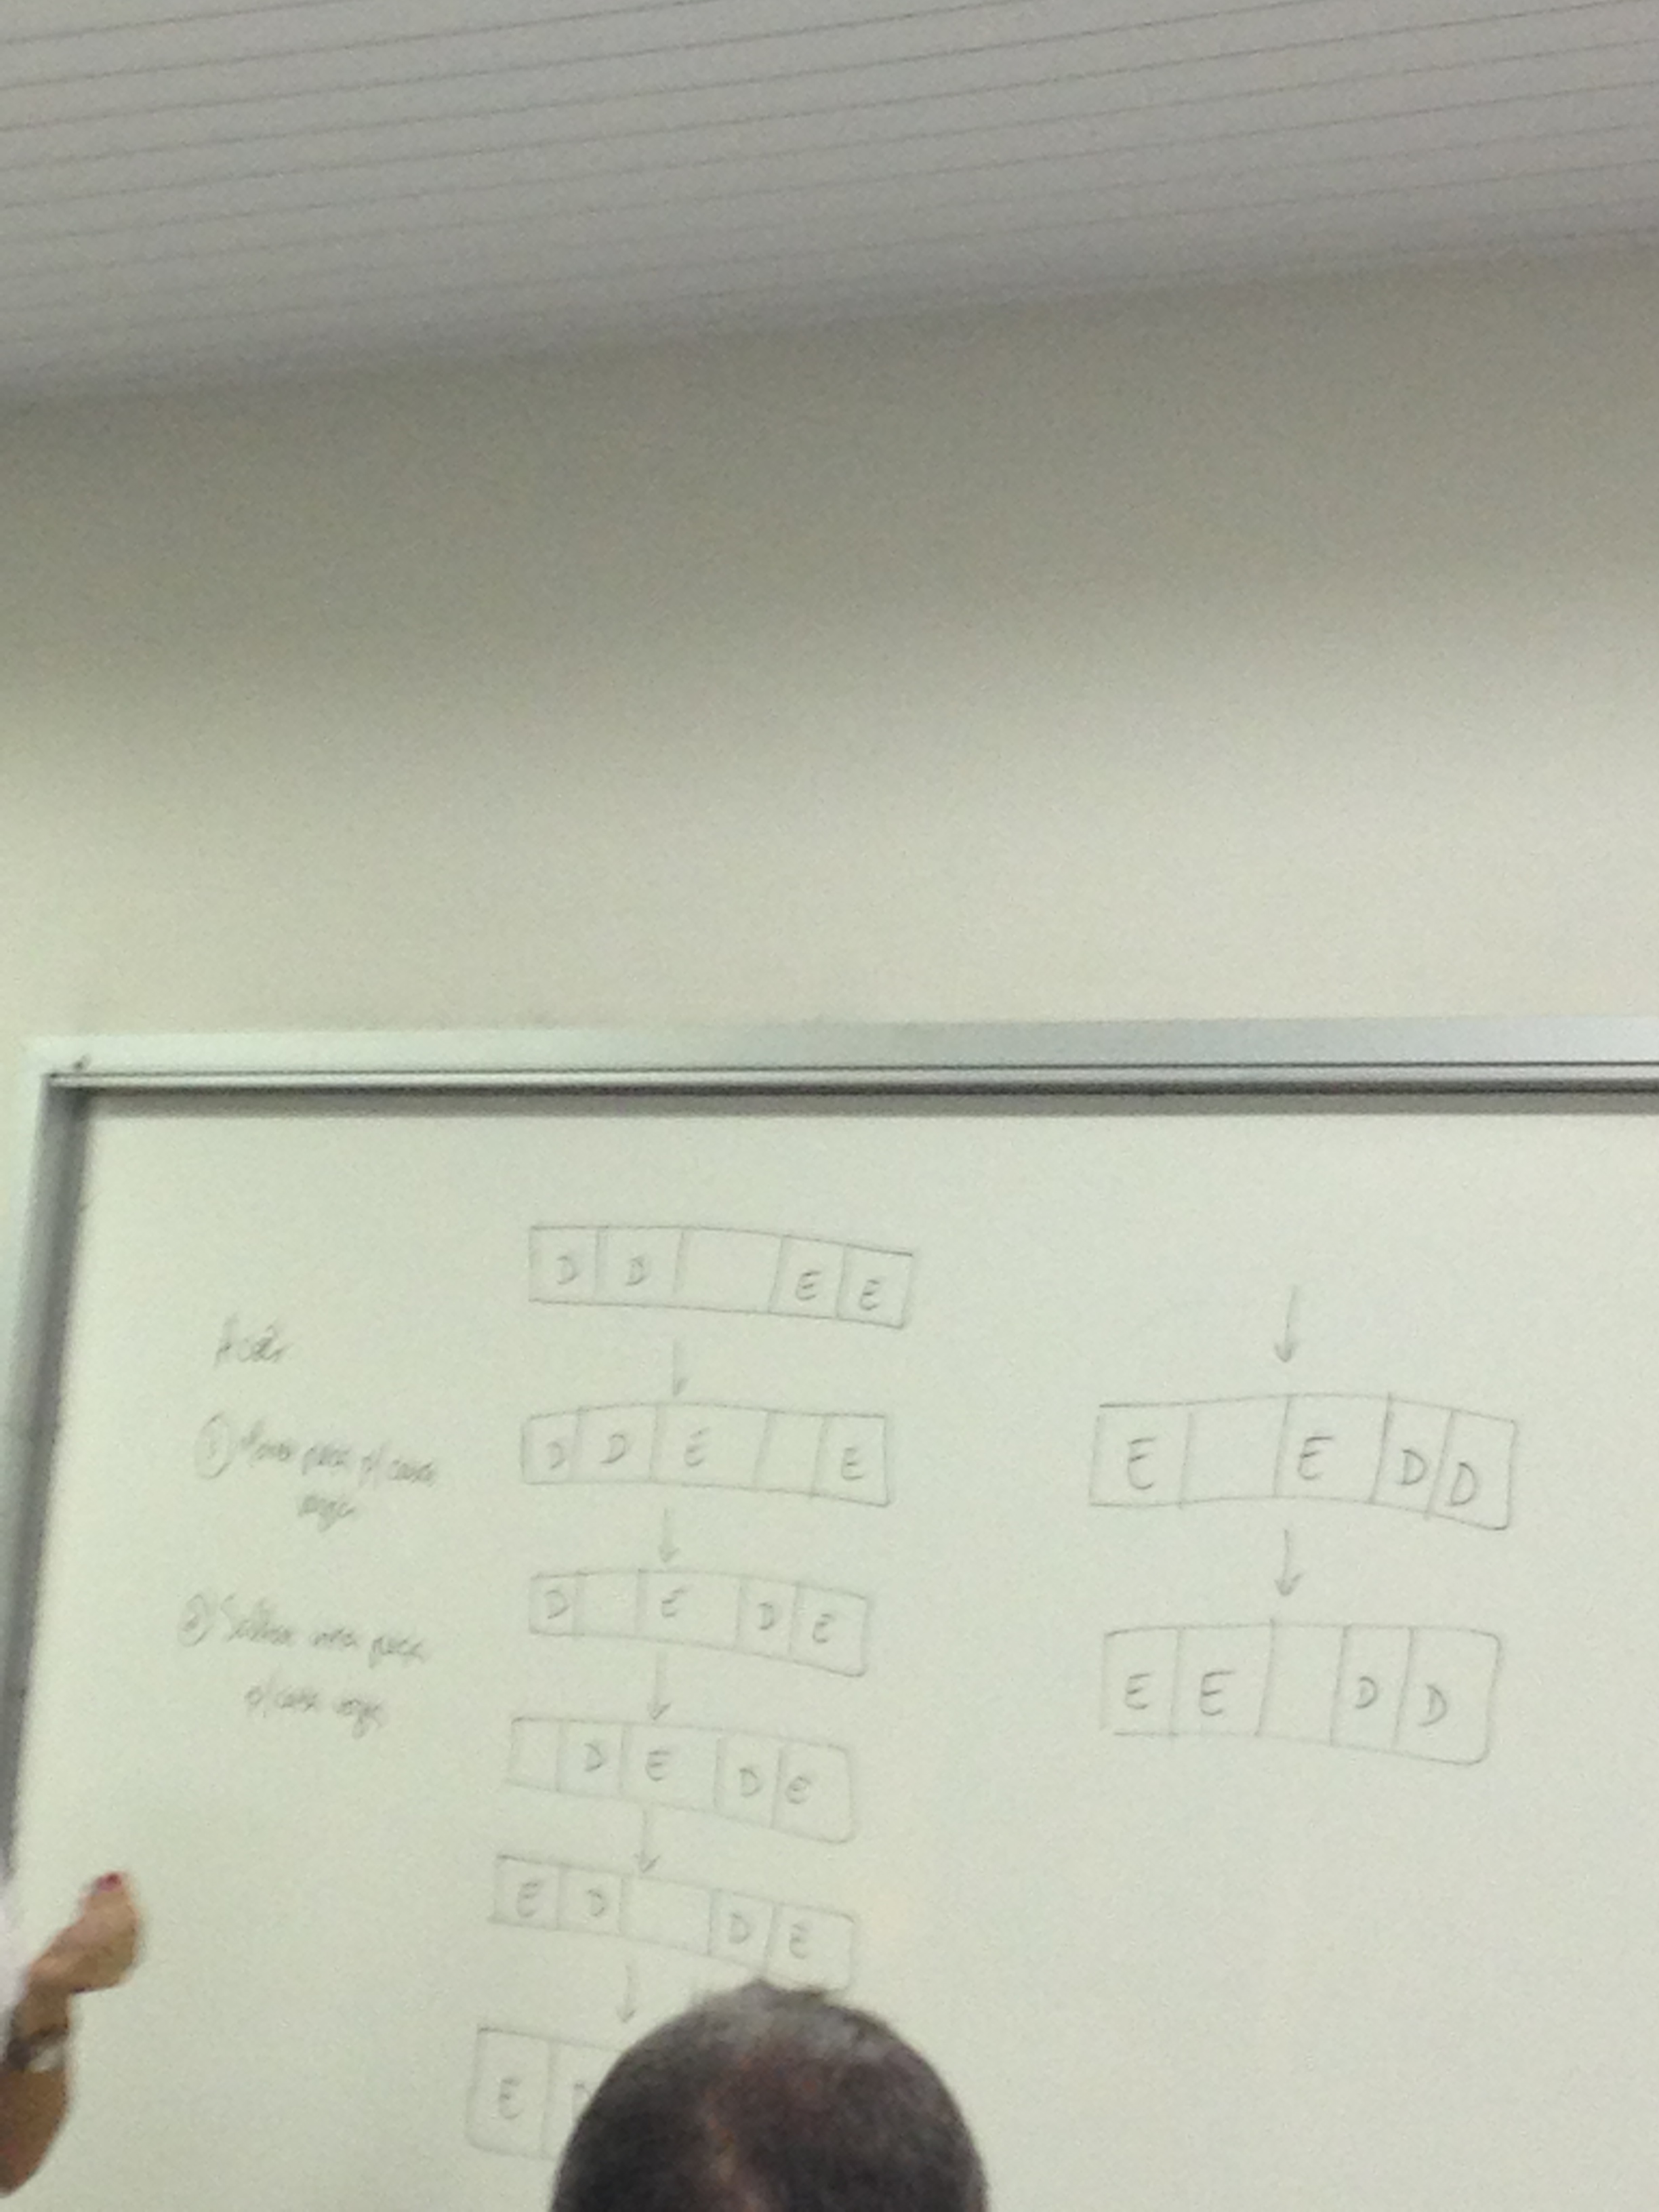 D D E E
Ações
① Mover peça p/ casa
vazia
② Saltar uma peça
p/ casa vazia
D D E E
D E D E
D E D E
E D D E
E D
E E D D
E E D D